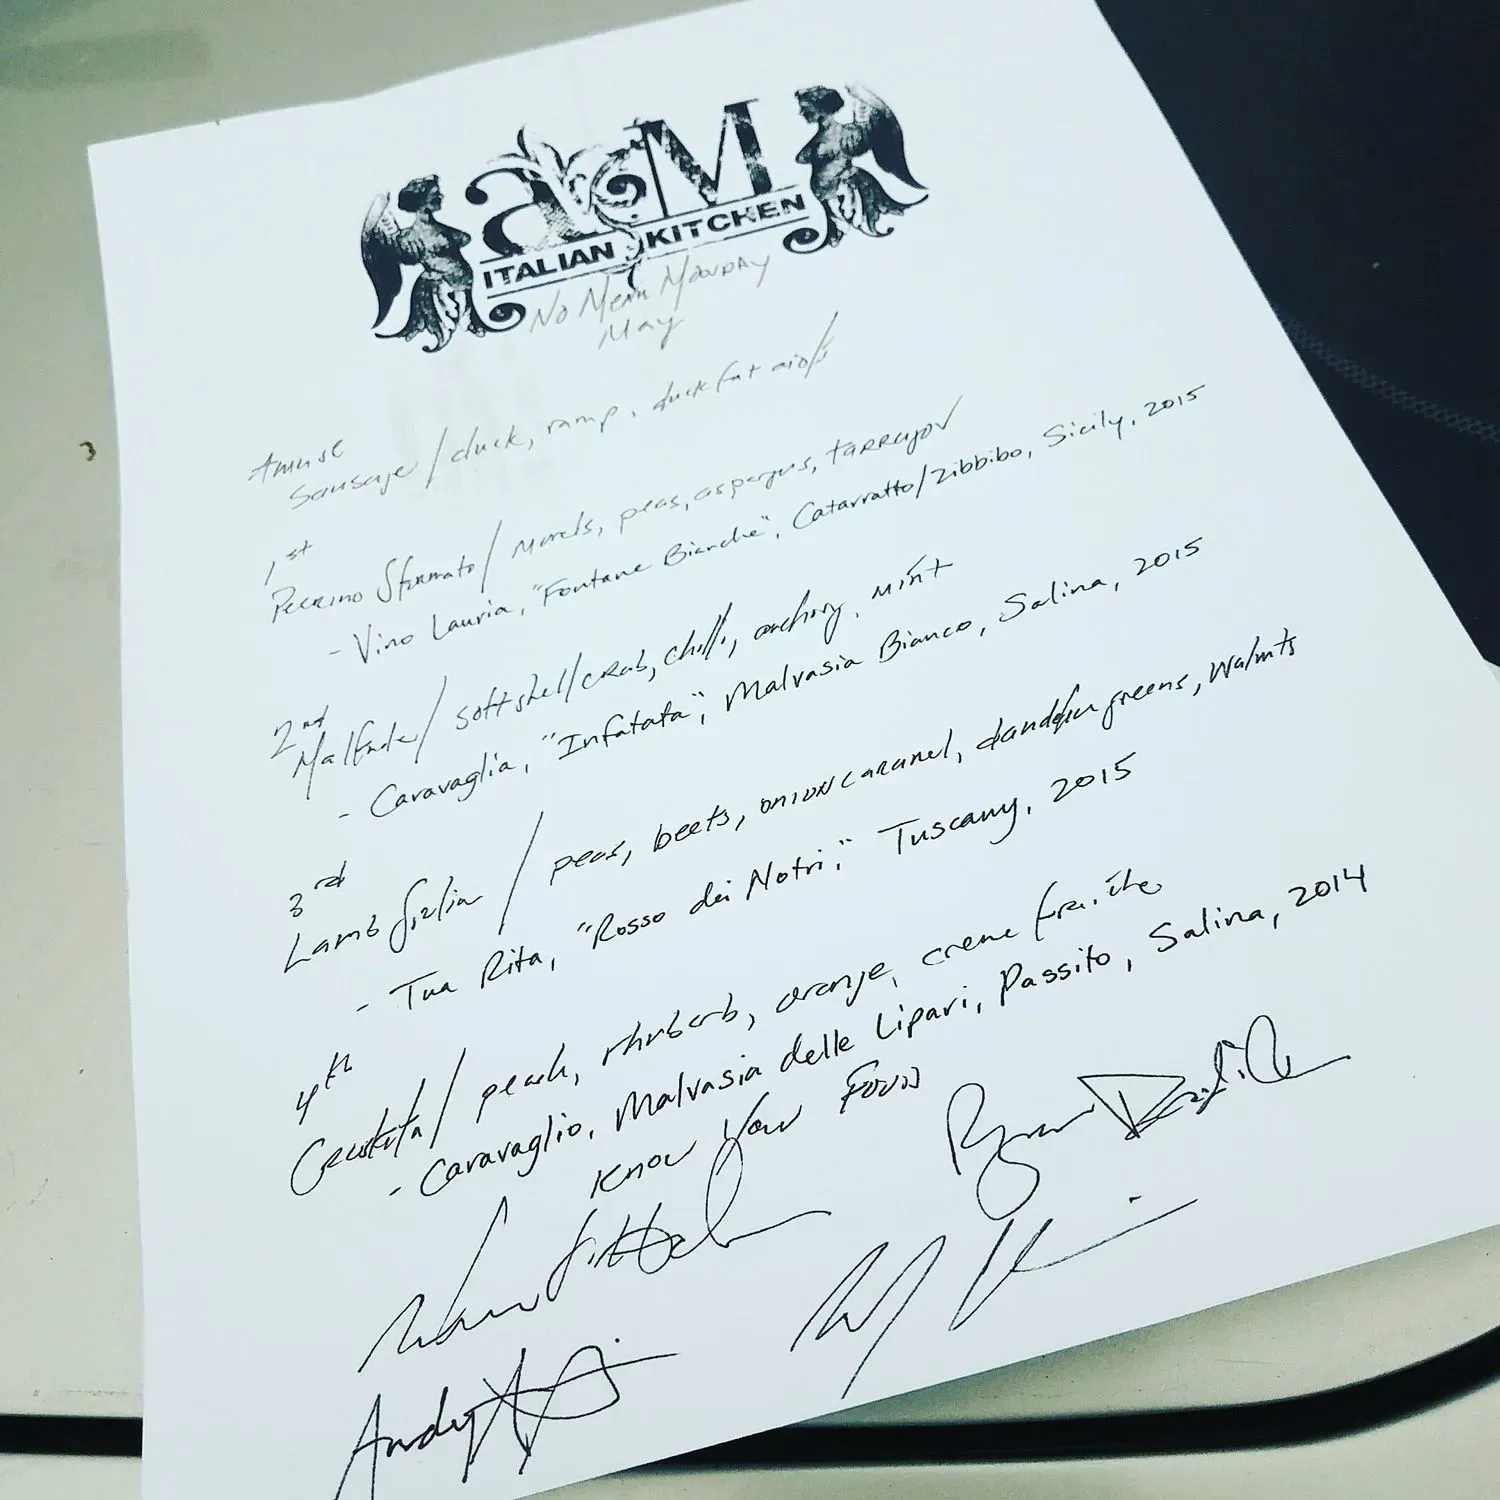 a&M
ITALIAN KITCHEN
No Mean Monday
May
Amuse
Sausage / duck, ramp, duck fat aioli
1st
Pecorino Sformato / Morels, peas, aspargus, tarragon
- Vino Lauria, "Fontane Bianche", Catarratto/Zibbibo, Sicily, 2015
2nd
Malfade / softshell crab, chili, anchovy, mint
- Caravaglia, "Infatata", Malvasia Bianco, Salina, 2015
3rd
Lamb / peas, beets, onion caramel, dandelion greens, Walnuts
- Tua Rita, "Rosso dei Notri", Tuscany, 2015
4th
Crostata / peach, rhubarb, orange, creme fraiche
- Caravaglio, Malvasia delle Lipari, Passito, Salina, 2014
Know Your
Andy